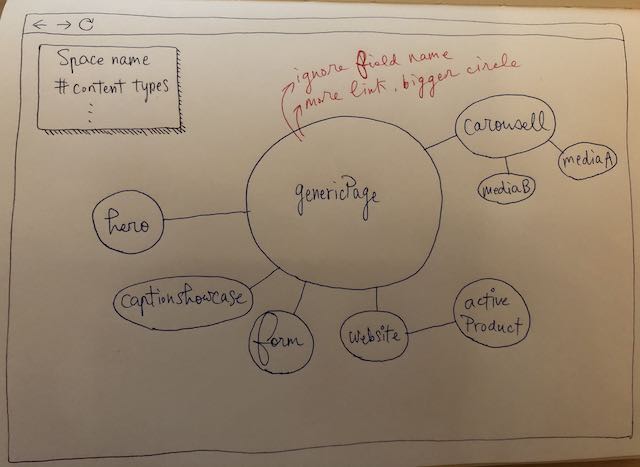 Space name
# content types
⋮
ignore field name
more link, bigger circle
genericPage
carousell
mediaA
mediaB
hero
captionshowcase
form
website
active
Product